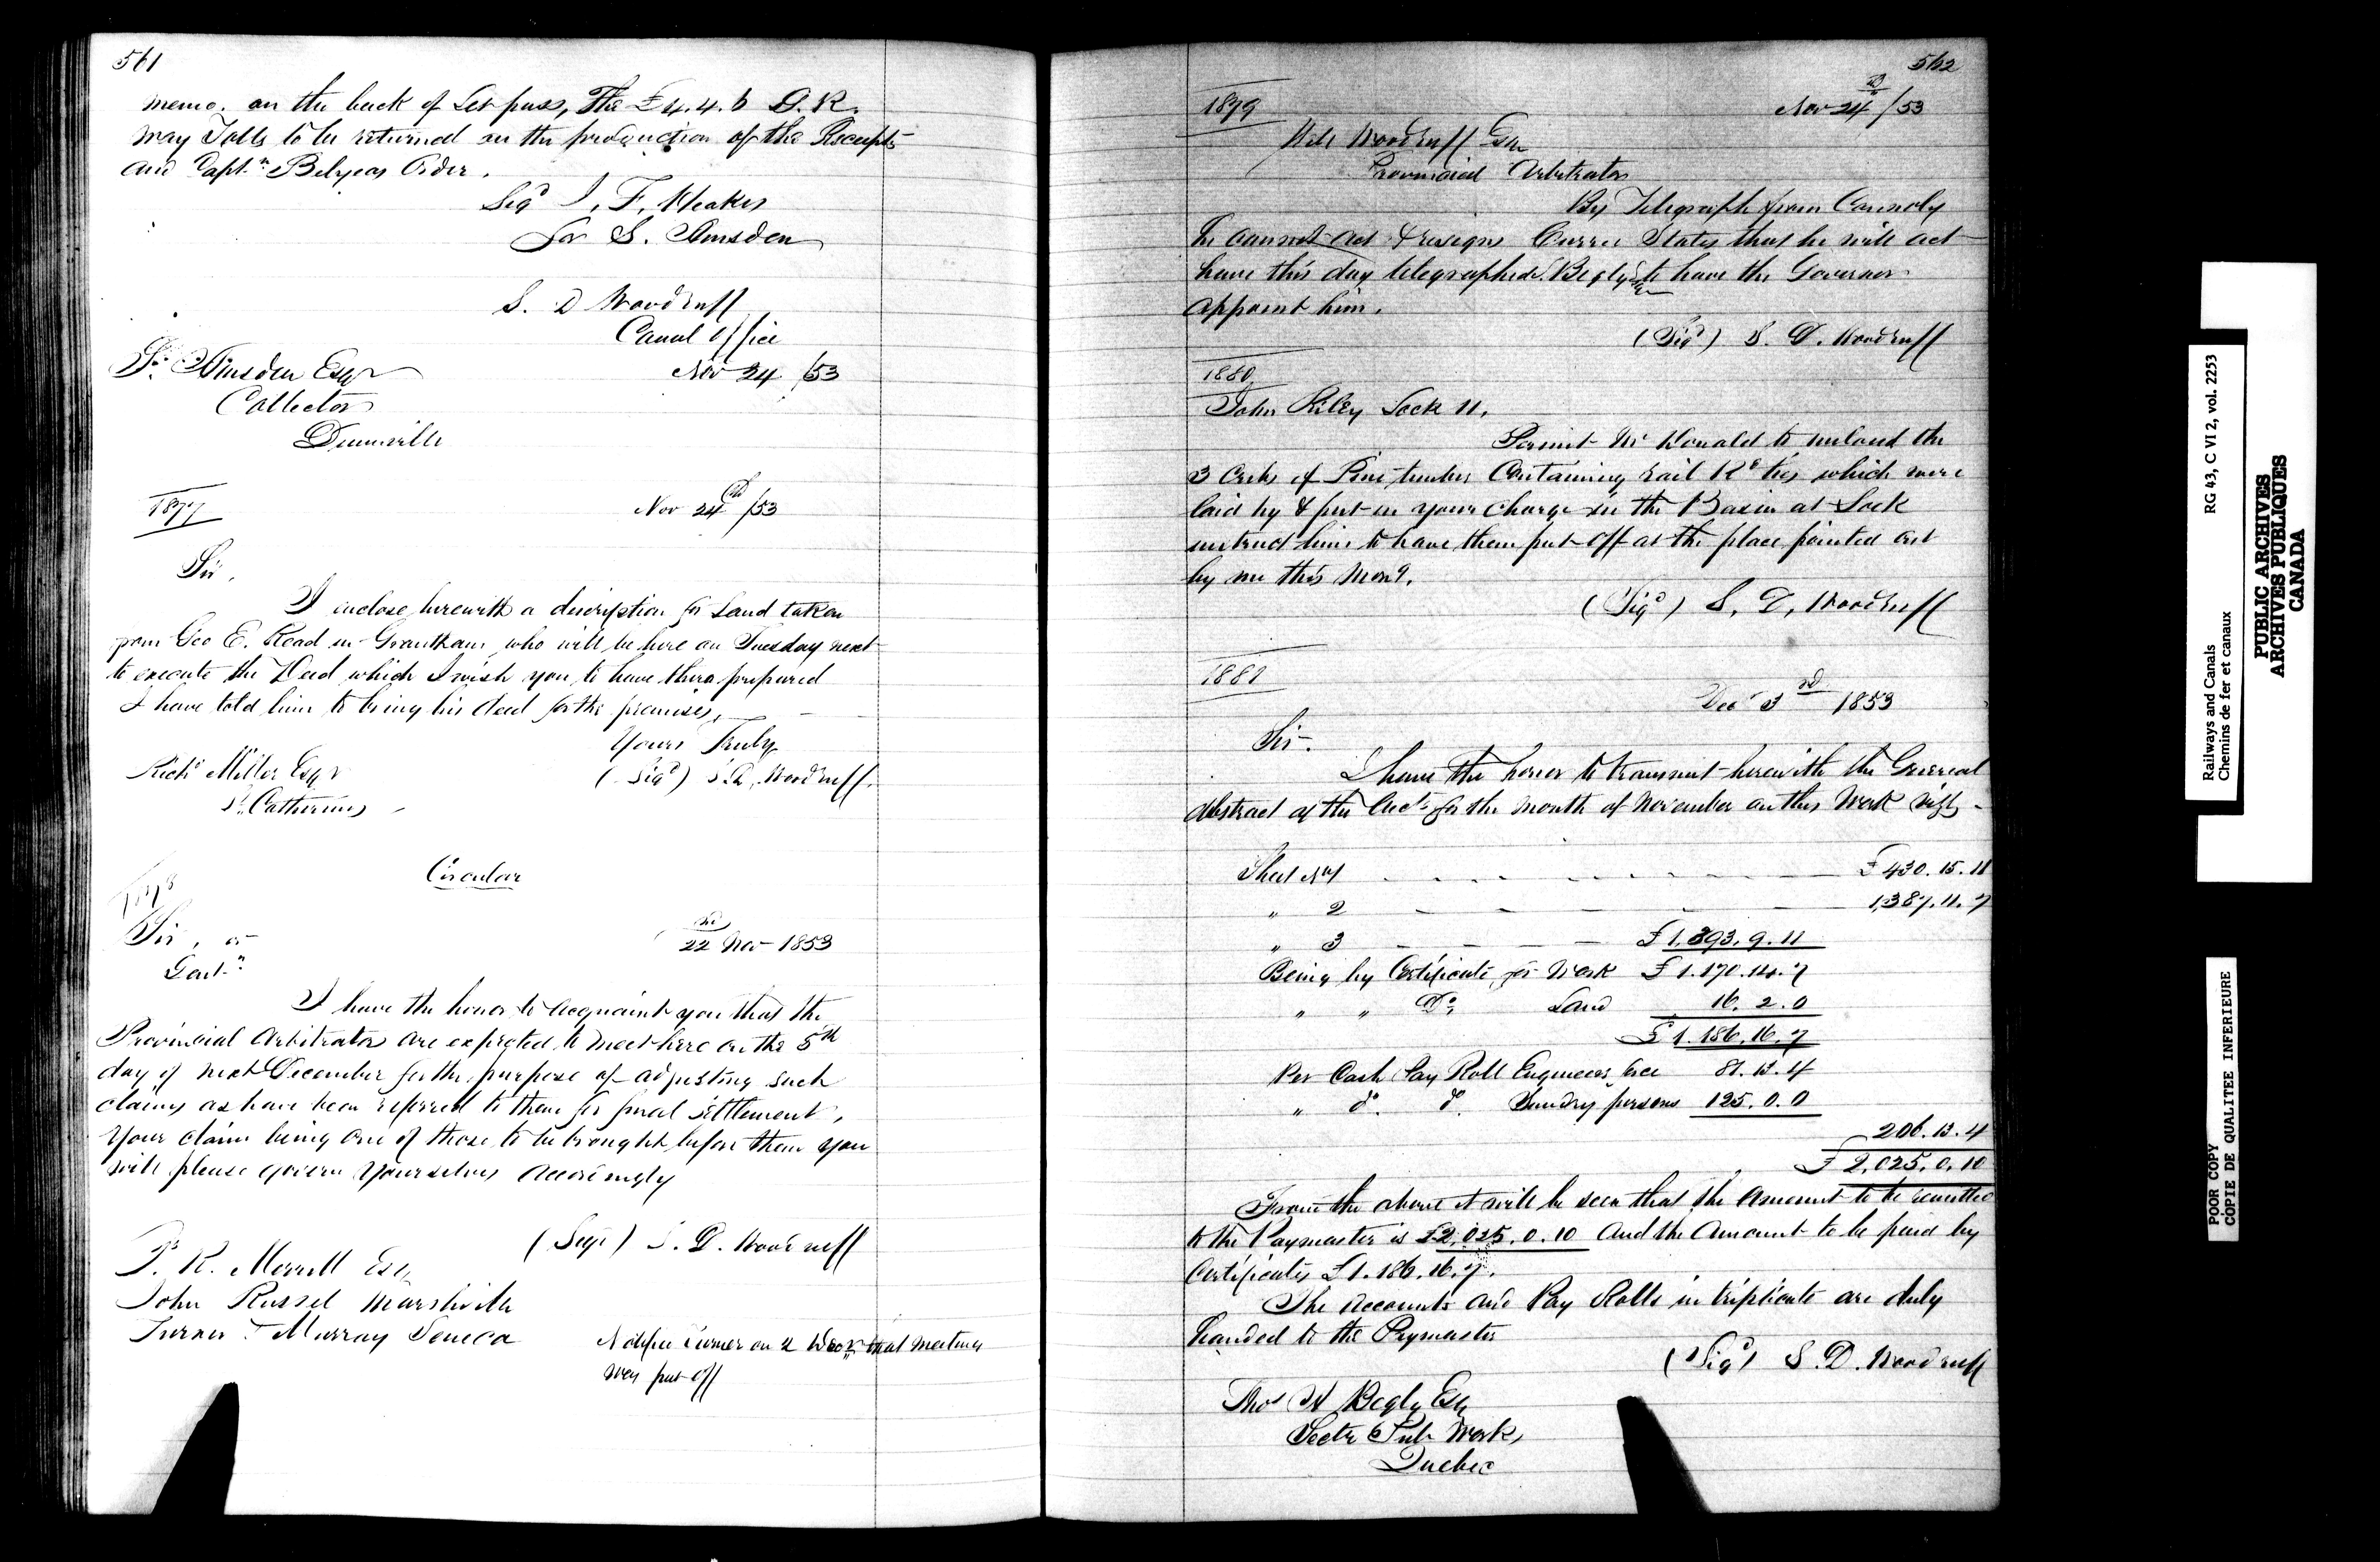 561
memo. on the back of Let pass, The £4.4.6 G. R.
may Tolls to be returned on the production of the Receipts
and Capt.n Belyeas Order.
Sigd J. F. Meakes
for S. Amsden
S. D Woodruff
Canal Office
Nov 24 /53
S. Amsden Esqr
Collector
Dunnville
1877
Nov 24th /53
Sir,
I enclose herewith a description for Land taken
from Geo E. Read in Grantham who will be here on Tuesday next
to execute the Deed which I wish you to have there prepared
I have told him to bring his deed for the premises,
Yours Truly
(Sigd) S. D. Woodruff.
Richd Miller Esqr
St. Catherines
Circular
1878
22nd Nov 1853
Sir, or
Gentn.
I have the honor to acquaint you that the
Provincial Arbitrators are expected to meet here on the 5th
day of next December for the purpose of adjusting such
claims as have been referred to them for final settlement,
Your claim being one of those to be brought before them you
will please govern Yourselves accordingly
(Sigd) S. D. Woodruff
P. R. Merrill Esq
John Russel Marshville
Turner & Murray Seneca
Notified Turner on 2 Decr that meeting
was put off
562
1879
Nov 24th /53
Woodruff Esqr
Provincial Arbitrator
By Telegraph from Connoly
he cannot act & resigns Currie States that he will act
have this day telegraphed Begly to have the Governor
appoint him.
(Sigd) S. D. Woodruff
1880
John Riley Lock 11.
Permit Mr Donald to unload the
3 Cribs of Pine timber Containing rail Rd ties which were
laid by & put in your charge in the Basin at Lock
instruct him to have them put off at the place pointed out
by me this Morng.
(Sigd) S. D. Woodruff
1881
Dec 3rd 1853
Sir.
I have the honor to transmit herewith the General
Abstract of the Accts for the month of November on this Work vizt,
Sheet No 1 £430.15.11
" 2 1,387.11.7
" 3 £1,393.9.11
Being by Certificate for Work £1.170.14.7
" " Do. Land 16.2.0
£1.186.16.7
Per Cash Pay Roll Engineers &ce 81.13.4
" do. do. Sundry persons 125.0.0
206.13.4
£2,025.0.10
From the above it will be seen that the Amount to be remitted
to the Paymaster is £2,025.0.10 And the Amount to be paid by
Certificates £1.186.16.7.
The Accounts and Pay Rolls in triplicate are duly
handed to the Paymaster
(Sigd) S. D. Woodruff
Thos A Begly Esq
Secty Pub Works
Quebec
Railways and Canals
Chemins de fer et canaux
RG 43, C VI 2, vol. 2253
PUBLIC ARCHIVES
ARCHIVES PUBLIQUES
CANADA
POOR COPY
COPIE DE QUALITEE INFERIEURE